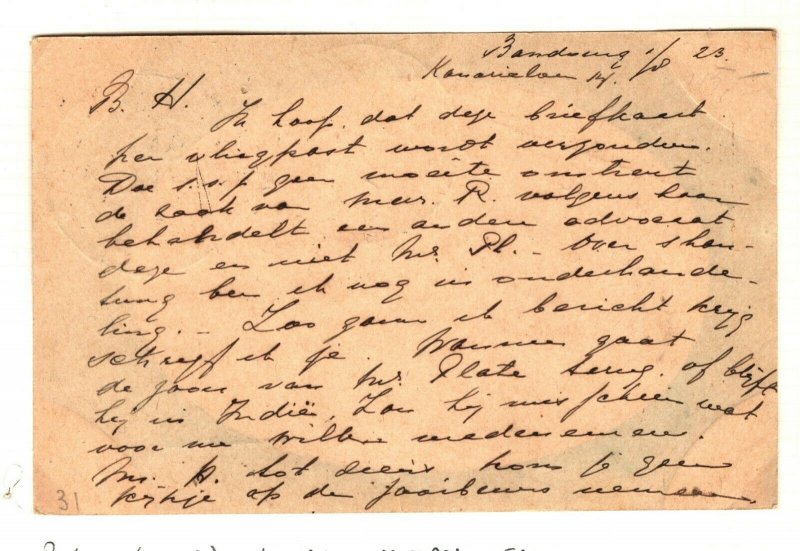 Bandoeng 1/8 23.
Kanarielaan 14.
B. H. Ik hoop dat deze briefkaart
per vliegpost wordt verzonden.
Doe s.s.f geen moeite omtrent
de zaak van mevr. R. volgens haar
behandelt een andere advocaat
deze en niet Mr Pl. - Over shan-
tung ben ik nog in onderhande-
ling. - Zoo gauw ik bericht krijg
schrijf ik je. Wanneer gaat
de zoon van Mr Plate terug, of blijft
hij in Indië, Zou hij misschien wat
voor me willen medenemen.
Mr. P. tot kom je geen
kijkje op de Jaarbeurs nemen
31